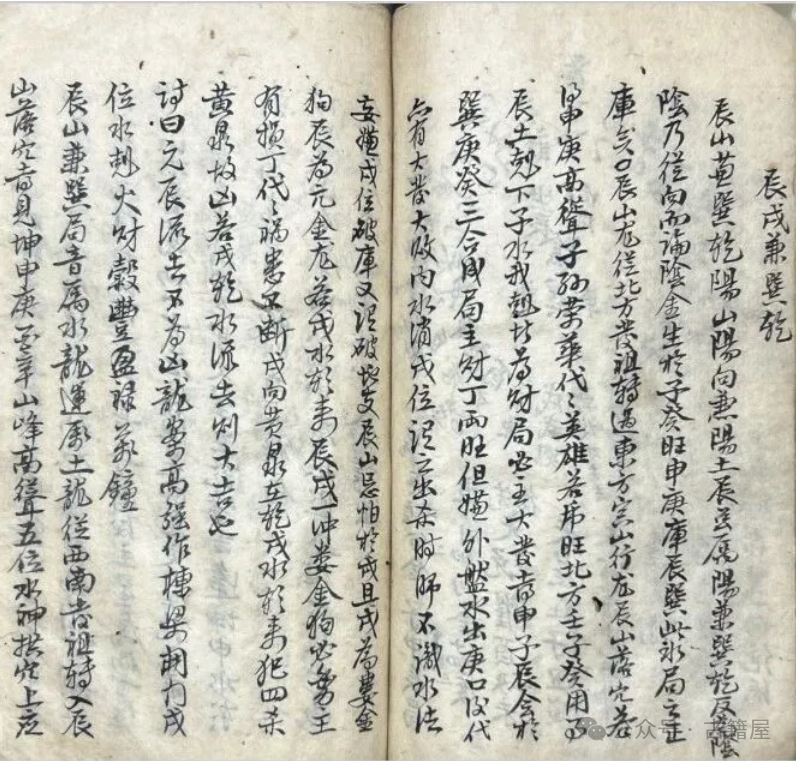 辰戌兼巽乾
辰山兼巽乾陽山陽向兼陽土辰并属陽兼巽乾反為陰
陰乃從向而論陰金生於子癸旺申庚庫辰巽此水局之正
庫矣辰山龙從北方發祖轉过東方穴山行龙辰山落穴若
得申庚高聳子孙荣華代々英雄若帝旺北方壬子癸用
辰土剋下子水我剋者為财局必主大發者申子辰会於
巽庚癸三合成局主财丁両旺但嫌外盤水出庚口後代
亦有大發大败内水消戌位谓之出杀时师不識水法
妄嫌戌位破庫又谓破地支辰山忌怕於戌且戌為娄金
狗辰為亢金龙若戌水朝来辰戌一冲娄金狗必
有损丁代々禍患不断戌向黄泉在乾戌水朝来犯四杀
黄泉故凶若戌乾水流去则大吉也
詩曰元辰流去不為凶龍安高强作棟梁開门戌
位水剋火财穀豐盈禄萬鐘
辰山兼巽局音属水龍運属土龍從西南發祖轉入辰
山落穴喜見坤申庚酉辛山峰高聳五位水神拱穴上应
公众号·古籍屋